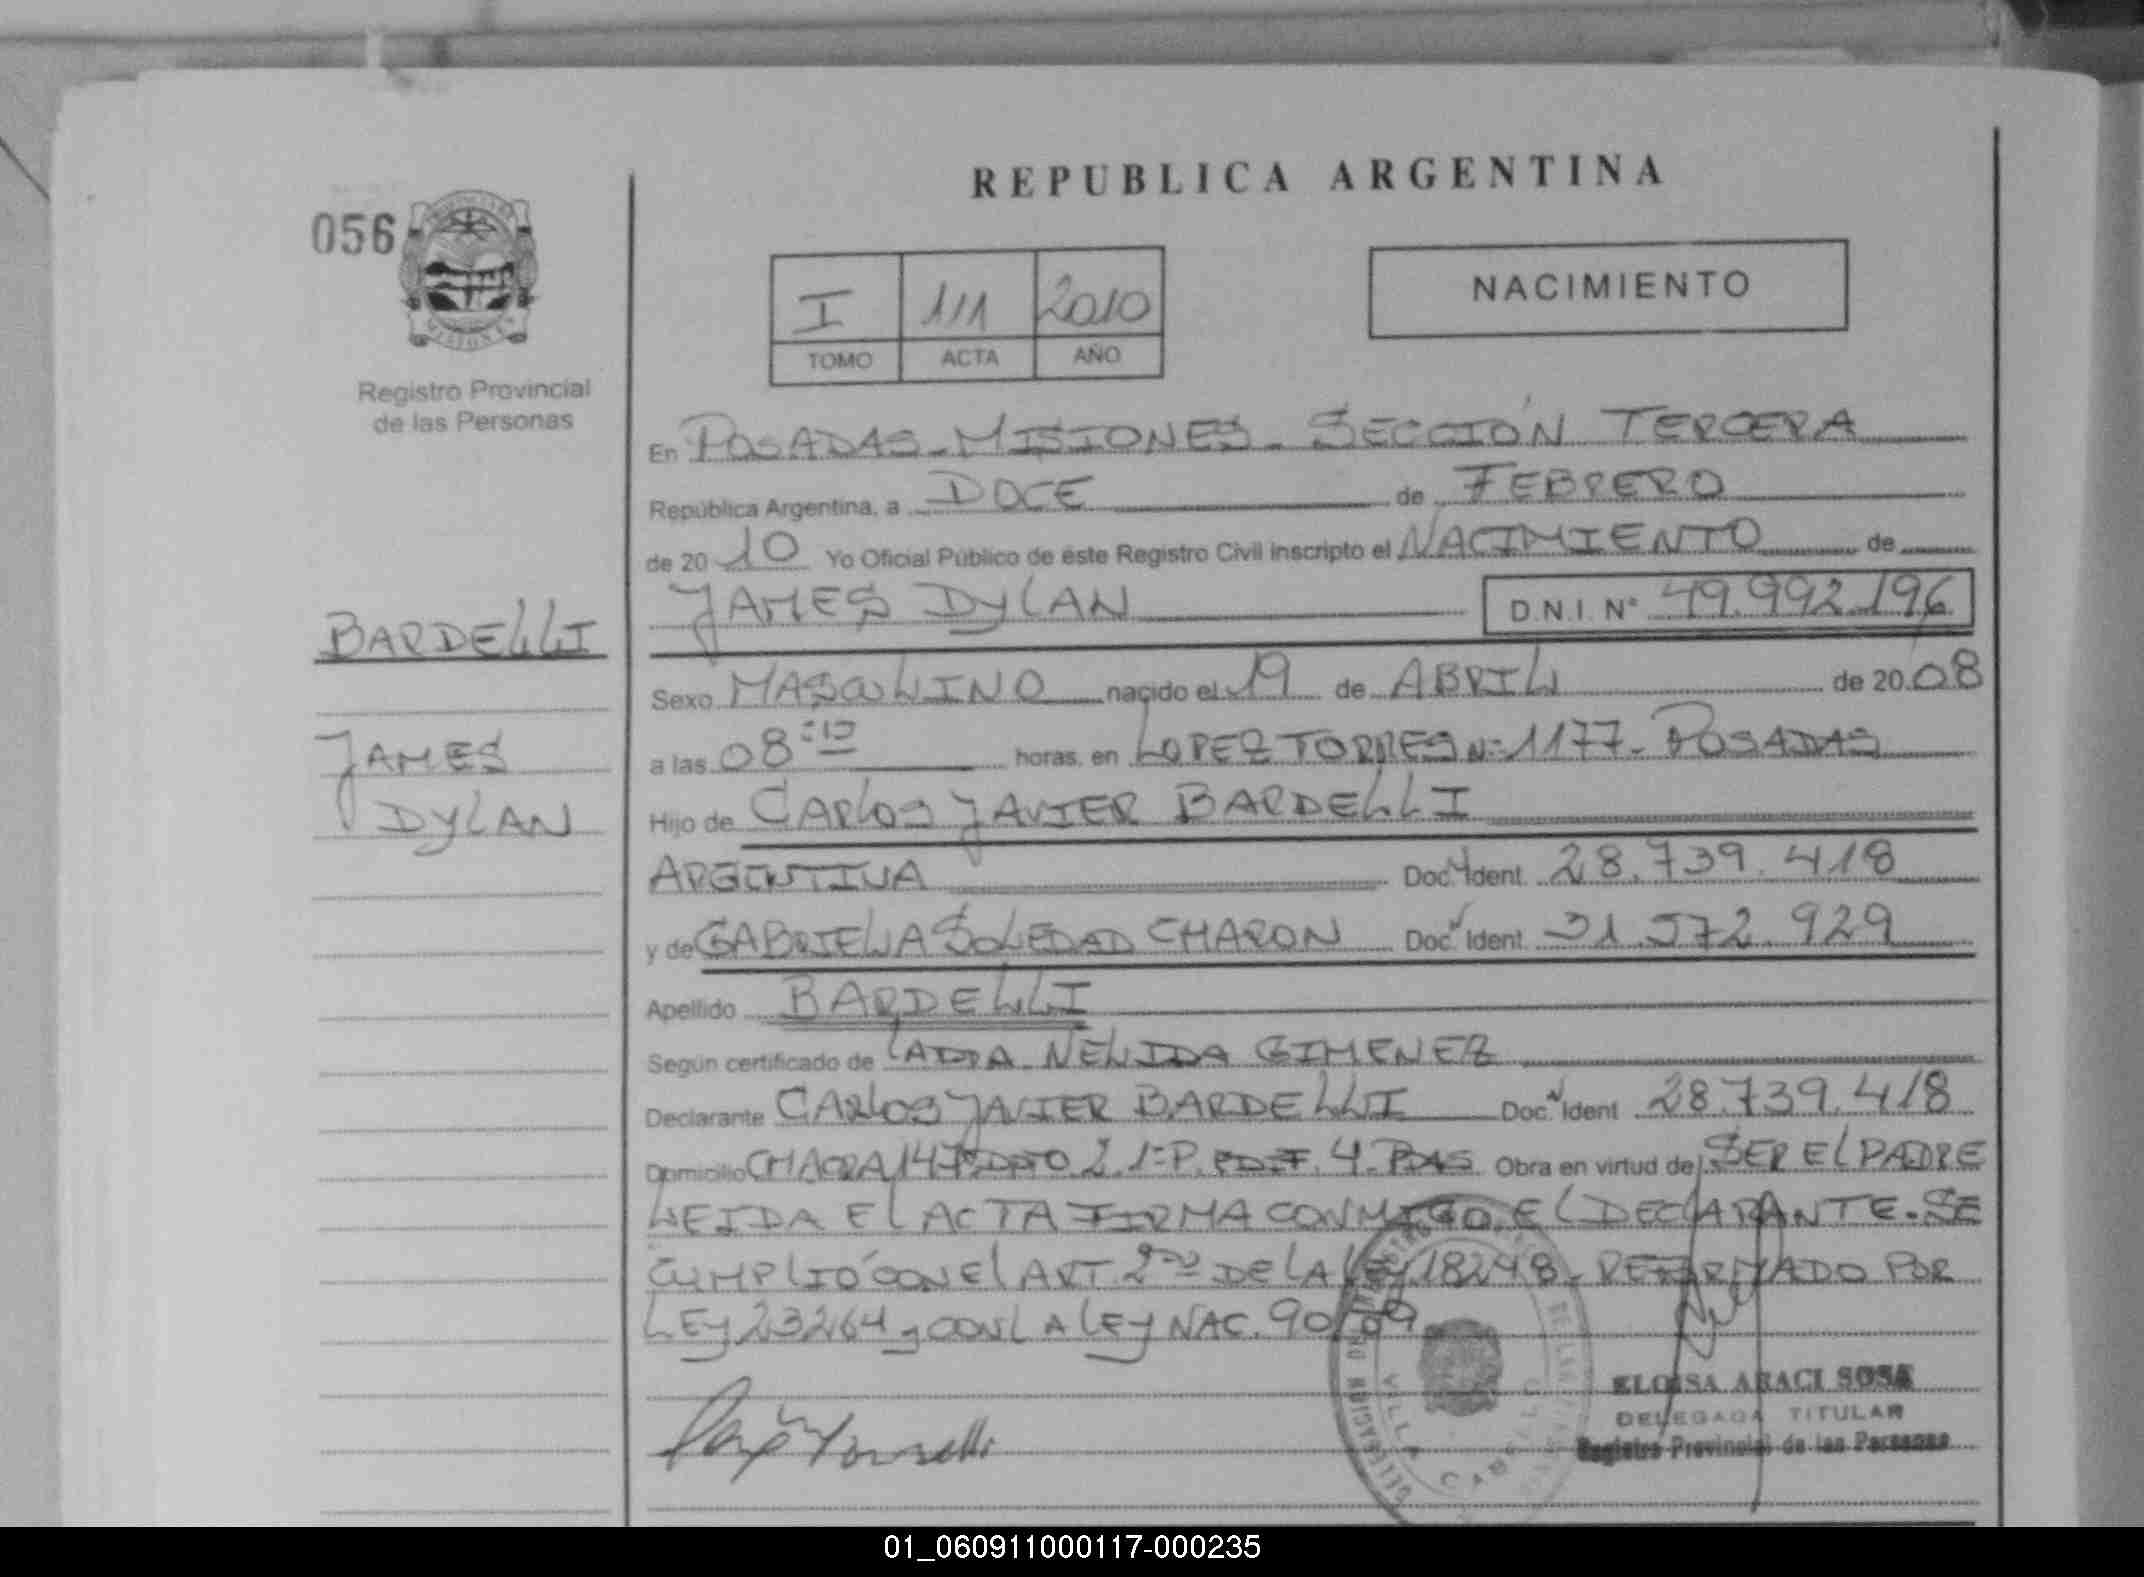 REPUBLICA ARGENTINA
056
I 111 2010
TOMO ACTA AÑO
NACIMIENTO
Registro Provincial
de las Personas
En POSADAS - MISIONES - SECCIÓN TERCERA
República Argentina, a DOCE de FEBRERO
de 2010 Yo Oficial Público de éste Registro Civil inscripto el NACIMIENTO de
JAMES DYLAN D.N.I. N° 49.992.196
BARDELLI
JAMES
DYLAN
Sexo MASCULINO nacido el 19 de ABRIL de 2008
a las 08 horas, en LOPEZ TORRES N: 1177 - POSADAS
Hijo de CARLOS JAVIER BARDELLI
ARGENTINA Doc. Ident. 28.739.418
y de GABRIELA SOLEDAD CHARON Doc. Ident. 31.572.929
Apellido BARDELLI
Según certificado de NELIDA GIMENEZ
Declarante CARLOS JAVIER BARDELLI Doc. Ident. 28.739.418
Domicilio CHACRA 147 DPTO 2 1:P. EDIF. 4. PDAS Obra en virtud de SER EL PADRE
LEIDA EL ACTA FIRMA CONMIGO EL DECLARANTE. SE
CUMPLIÓ CON EL ART. 2do DE LA LEY 18248 - REFORMADO POR
LEY 23264 y CON LA LEY NAC. 90/09
ELOISA ARACI SOSA
DELEGADA TITULAR
Registro Provincial de las Personas
VILLA CABELLO
01_060911000117-000235